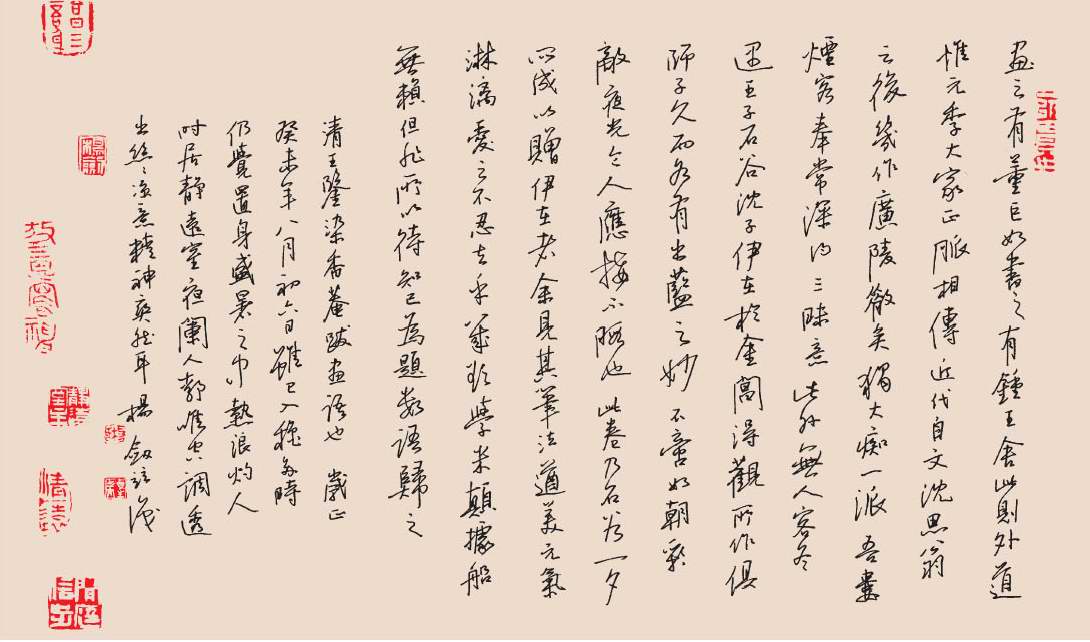 画之有董巨如書之有鍾王舍此則外道
惟元季大家正脈相傳近代自文沈思翁
之後幾作廣陵散矣獨大痴一派吾婁
煙客奉常深得三昧意此外無人客冬
遇王子石谷沈子伊在於金閶得觀所作俱
師子久而各有出藍之妙不啻如朝彩
敵夜光令人應接不暇也此卷乃石谷一夕
所成以贈伊在者余見其筆法遒美元氣
淋漓愛之不忍去手幾欲學米顛據船
無賴但非所以待知己為題數語歸之
清王鑒染香菴跋畫語也 歲正
癸未年八月初六日雖已入穐多時
仍覺置身盛暑之中熱浪灼人
时居静遠室夜闌人静惟空調透
出絲絲涼意精神爽然耳 楊劔 識